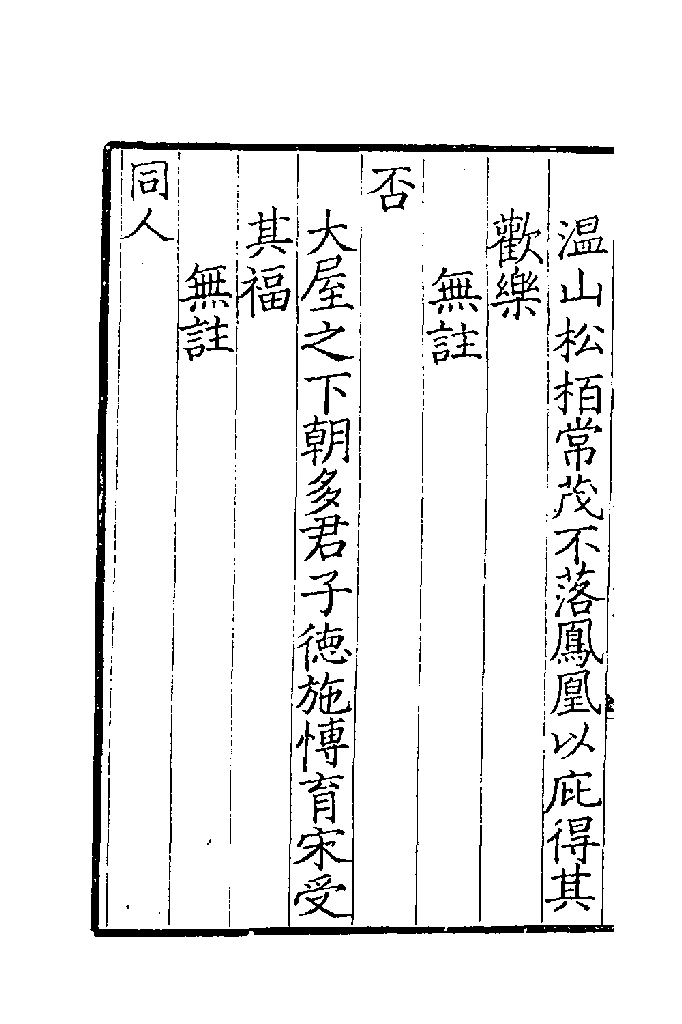 温山松栢常茂不落鳳凰以庇得其
歡樂
無註
否
大屋之下朝多君子徳施愽育宋受
其福
無註
同人